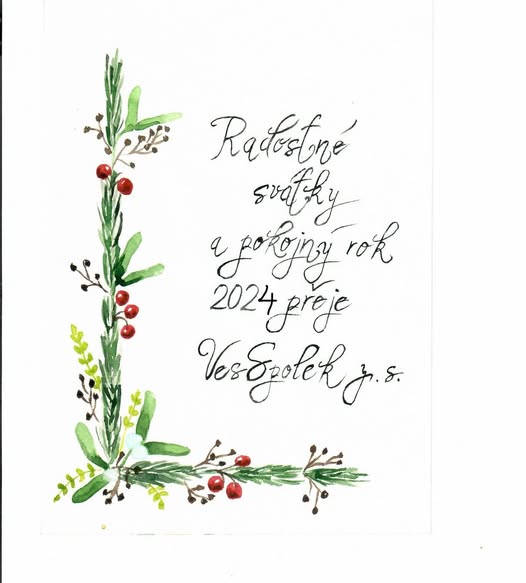 Radostné
svátky
a pokojný rok
2024 přeje
VesSpolek z.s.